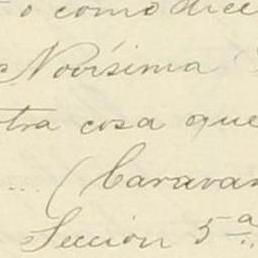 o como dice
Novísima
tra cosa que
... (Caravan
Sección 5ª..